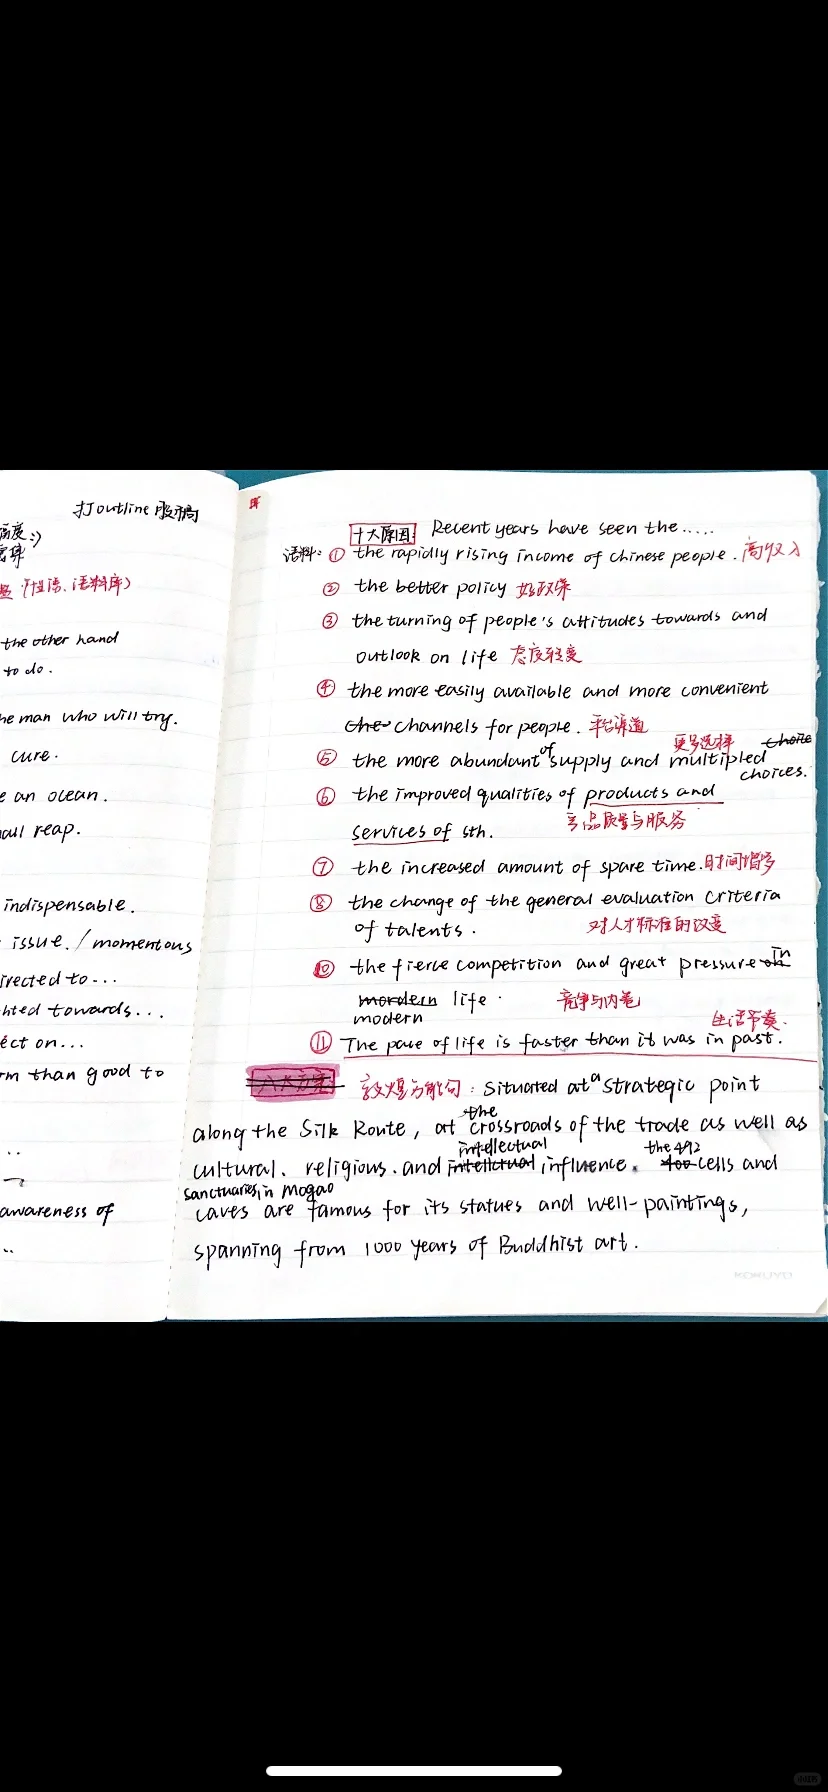 打outline 服稿
the other hand
to do.
he man who will try.
cure.
e an ocean.
all reap.
indispensable.
issue. / momentous
irected to...
hted towards...
ect on...
rm than good to
awareness of
十大原因: Recent years have seen the.....
语料: ① the rapidly rising income of Chinese people. 高收入
② the better policy 好政策
③ the turning of people's attitudes towards and
outlook on life 态度转变
④ the more easily available and more convenient
the channels for people. 平台渠道
更多选择 choice
⑤ the more abundant of supply and multipled
choices.
⑥ the improved qualities of products and
services of sth. 产品质量与服务
⑦ the increased amount of spare time. 时间增多
⑧ the change of the general evaluation criteria
of talents. 对人才标准的改变
⑩ the fierce competition and great pressure on in
mordern life. 竞争与内卷
modern
生活节奏.
⑪ The pace of life is faster than it was in past.
八大方案 敦煌万能句: Situated at a strategic point
along the Silk Route, at the crossroads of the trade as well as
intellectual the 492
cultural. religious. and intellctual influence. 400 cells and
sanctuaries in Mogao
caves are famous for its statues and well-paintings,
spanning from 1000 years of Buddhist art.
KOKUYO